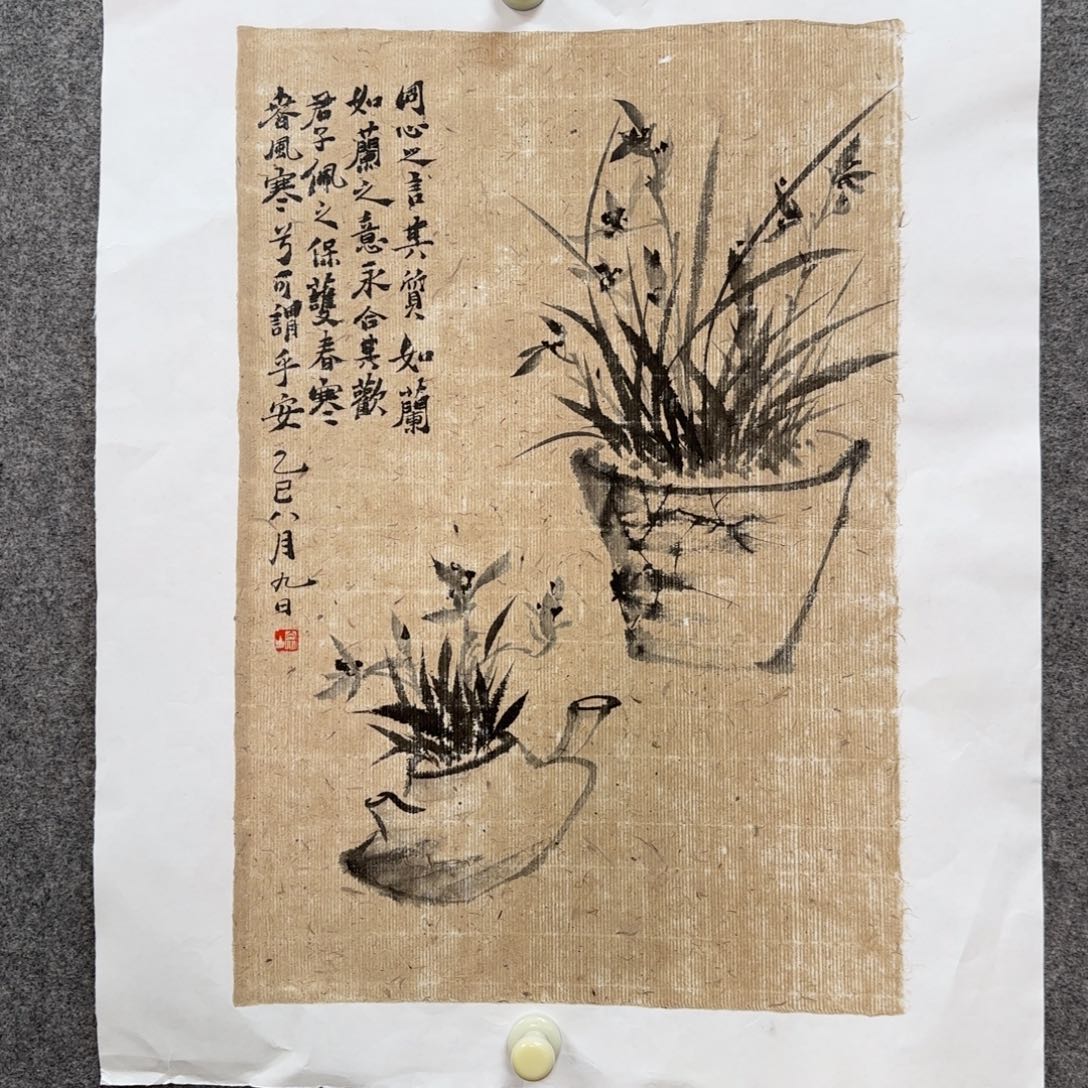 同心之言其質如蘭
如蘭之意永合其歡
君子佩之保護春寒
春風寒兮可謂乎安
乙巳八月九日